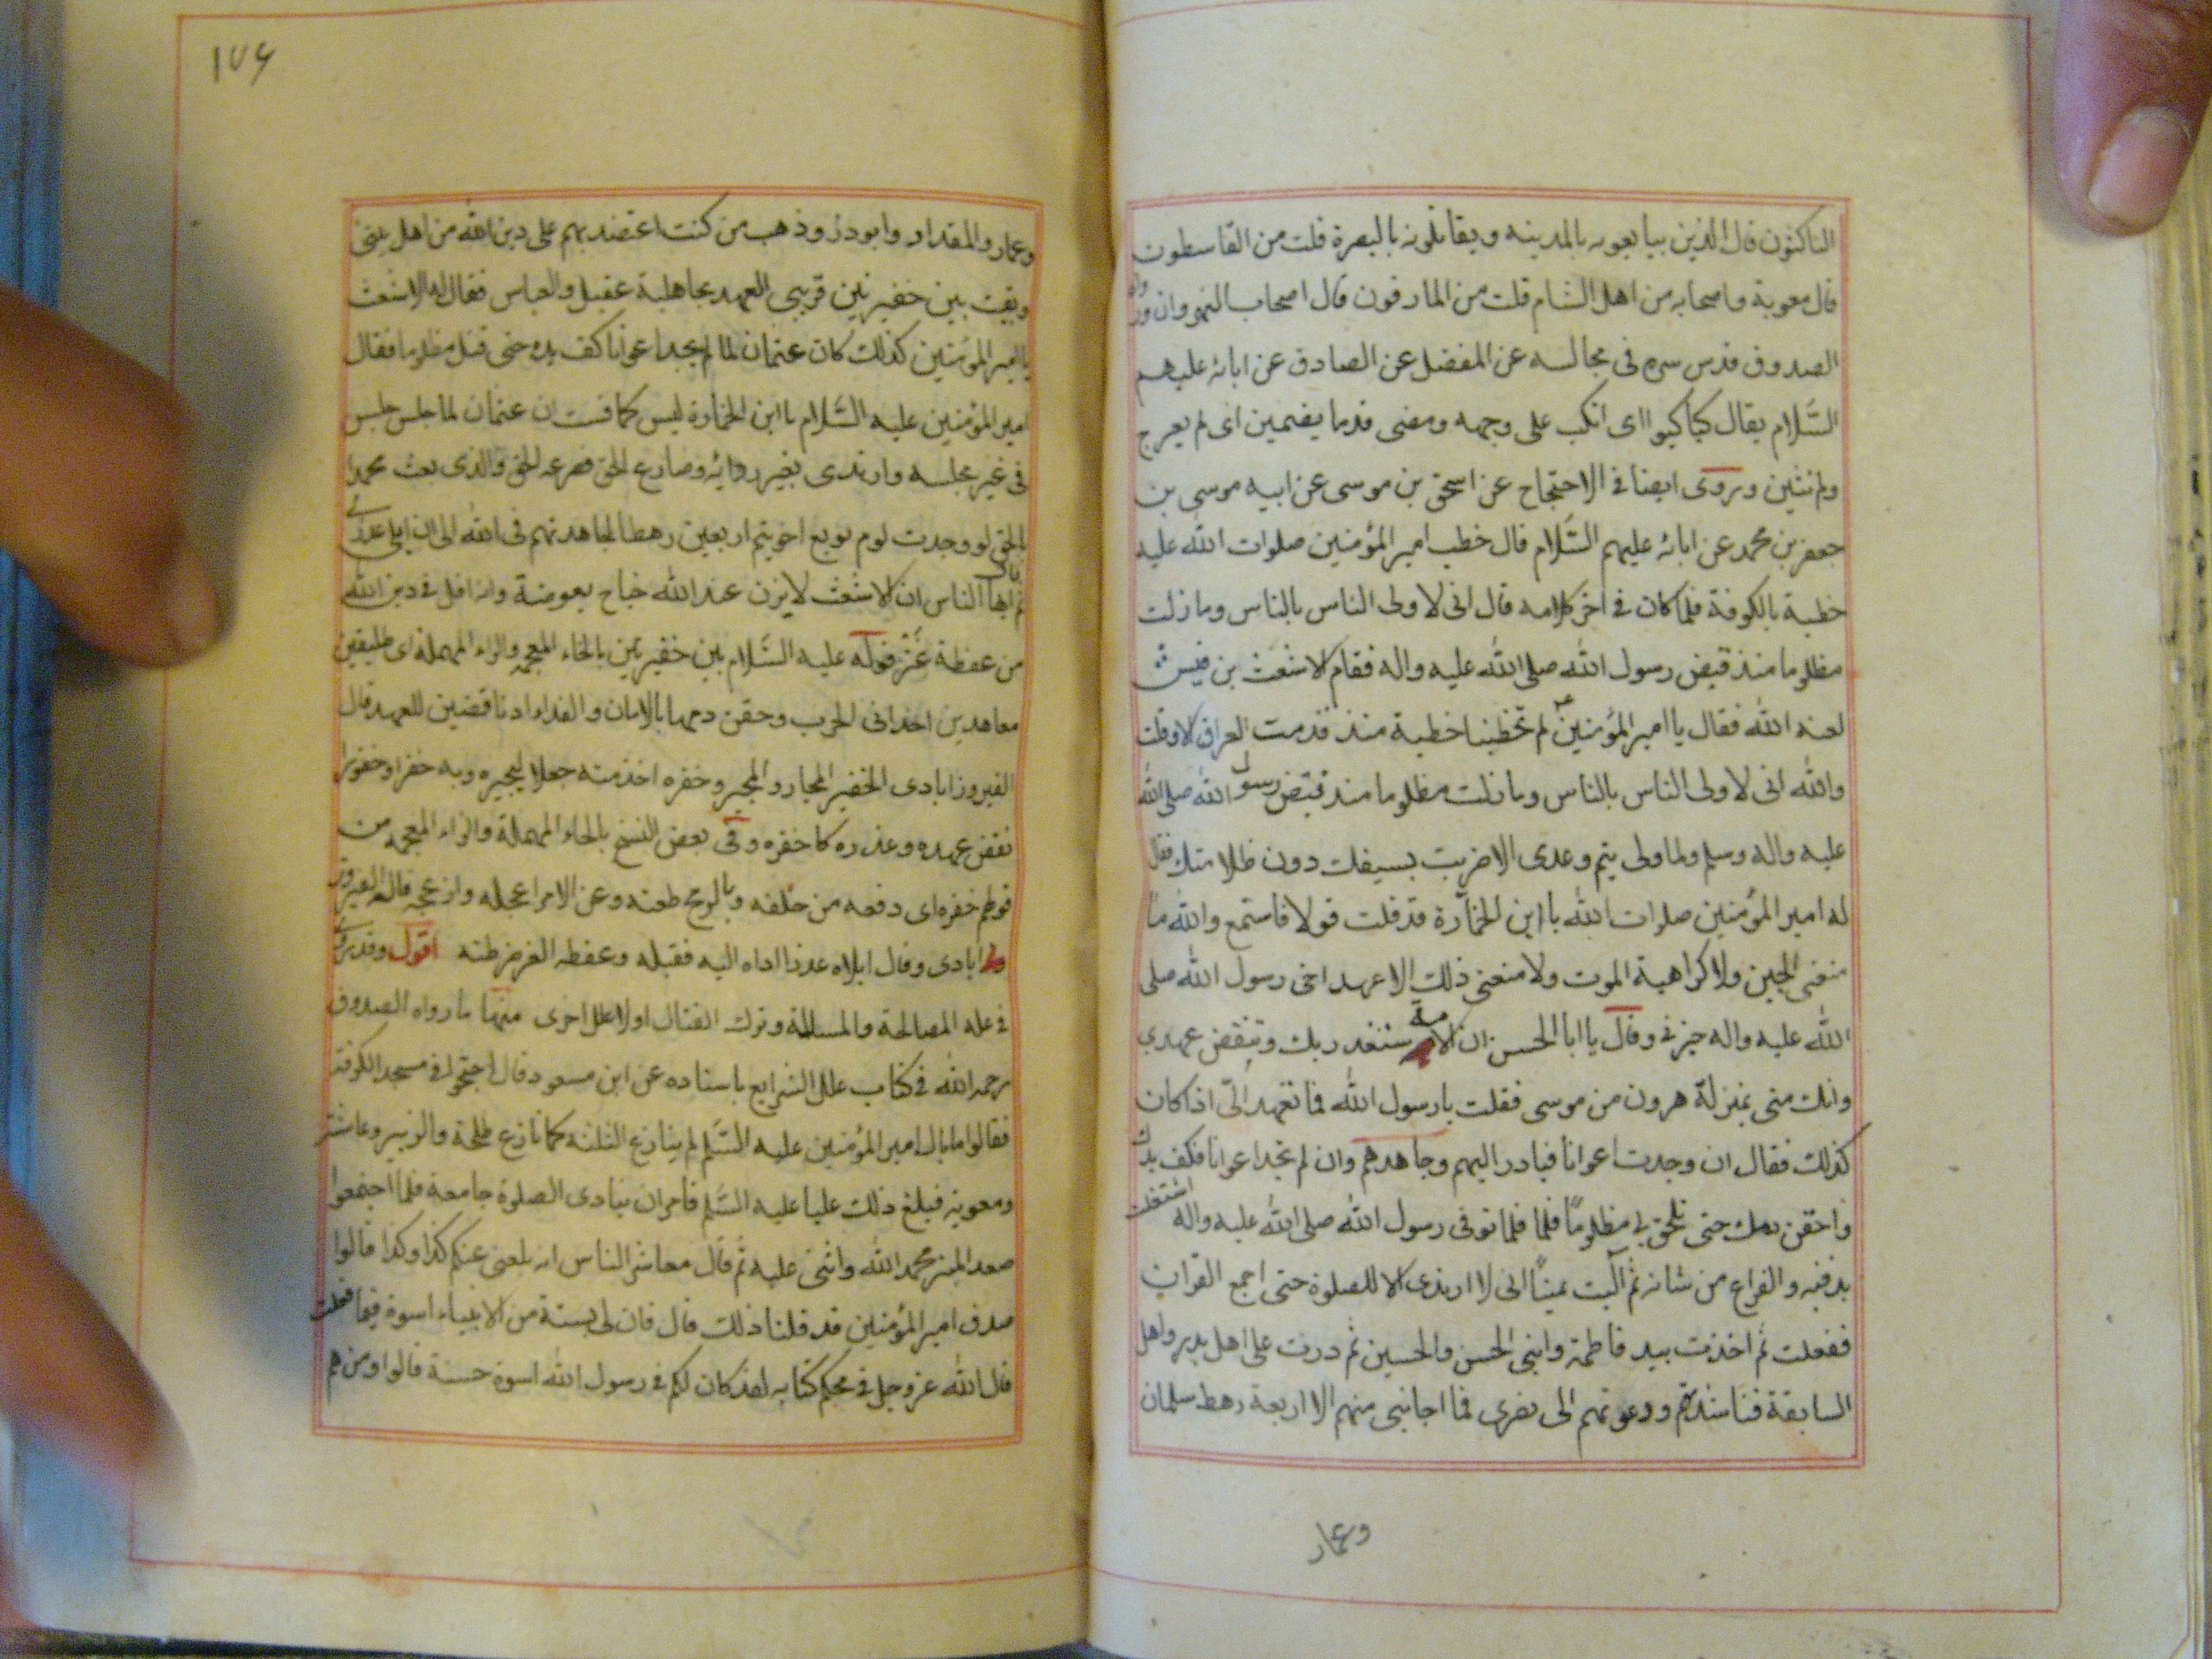 الناكثون قال الذين يبايعونه بالمدينه ويقاتلونه بالبصرة قلت من القاسطون
قال معوية واصحابه من اهل الشام قلت من المارقون قال اصحاب النهروان
الصدوق قدس سره فى مجالسه عن المفضل عن الصادق عن ابائه عليهم
السَّلام يقال كباكبوا اى انكب على وجهه ومضى قدما بضمين اى لم يعرج
ولم ينثن وروى ايضا فى الاحتجاج عن اسحق بن موسى عن ابيه موسى بن
جعفر بن محمد عن ابائه عليهم السَّلام قال خطب امير المؤمنين صلوات الله عليه
خطبة بالكوفة فلما كان فى اخر كلامه قال انى لاولى الناس بالناس وما زلت
مظلوما منذ قبض رسول الله صلى الله عليه واله فقام الاشعث بن قيس
لعنه الله فقال يا امير المؤمنين لم تخطبنا خطبة منذ قدمت العراق الا وقلت
والله انى لاولى الناس بالناس وما زلت مظلوما منذ قبض رسول الله صلى الله
عليه واله وسلم ولما ولى تيم وعدى الا ضربت بسيفك دون ظلامتك فقال
له امير المؤمنين صلوات الله يا ابن الخمَّارة قد قلت قولا فاستمع والله ما
منعنى الجبن ولا كراهية الموت ولا منعنى ذلك الا عهد اخى رسول الله صلى
الله عليه واله خبرنى وقال يا ابا الحسن ان الامة ستغدر بك وتنقض عهدي
وانك منى بمنزلة هرون من موسى فقلت يا رسول الله فما تعهد الىّ اذا كان
كذلك فقال ان وجدت اعوانا فبادر اليهم وجاهدهم وان لم تجد اعوانا فكف يدك
واحقن دمك حتى تلحق بى مظلومًا فلما فلما توفى رسول الله صلى الله عليه واله اشتغلت
بدفنه والفراغ من شانه ثم آليت يمينًا انى لا ارتدى الا للصلوة حتى اجمع القران
ففعلت ثم اخذت بيد فاطمة وابنى الحسن والحسين ثم درت على اهل بدر واهل
السابقة فناشدتهم ودعوتهم الى نصرى فما اجابنى منهم الا اربعة رهط سلمان
وعمار
١٧۶
وعمار والمقداد وابوذر وذهب من كنت اعتضد بهم على دين الله من اهل بيتى
وبقيت بين خفيرتين قريبى العهد بجاهلية عقيل والعباس فقال له الاشعث
يا امير المؤمنين كذلك كان عثمان لما لم يجد اعوانا كف يده حتى قتل مظلوما فقال
امير المؤمنين عليه السَّلام يا ابن الخمارة ليس كما قست ان عثمان لما جلس جلس
فى غير مجلسه وارتدى بغير ردائه وصارع الحق فصرعه الحق والذى بعث محمدا
بالحق لو وجدت يوم بويع اخو تيم اربعين رهطا لجاهدتهم فى الله الى ان ابلى عذرى
ثم ايها الناس ان الاشعث لا يزن عند الله جناح بعوضة وانه اقل فى دين الله
من عفطة عنز قوله عليه السَّلام بين خفيرتين بالخاء المعجمه والراء المهملة اى طليقين
معاهدين اخذا فى الحرب وحقن دمهما بالامان والفداء او ناقضين للعهد قال
الفيروزابادى الخفير المجار والمجير وخفره اخذ منه جعلا ليجيره وبه خفرا وخفورا
نقض عهده وغدره كاخفره وفى بعض النسخ بالحاء المهملة والزاء المعجمه من
قولهم حفزه اى دفعه من خلفه وبالرمح طعنه وعن الامر اعجله وازعجه قاله الفيروز
ابادى وقال ابلاه عذرا اداه اليه فقبله وعفطه العنز ضرطته اقول وقد
فى علة المصالحة والمسالمة وترك القتال اولا علل اخرى منها ما رواه الصدوق
رحمه الله فى كتاب علل الشرايع باسناده عن ابن مسعود قال احتجوا فى مسجد الكوفة
فقالوا ما بال امير المؤمنين عليه السَّلم لم ينازع الثلثة كما نازع طلحة والزبير وعائشة
ومعوية فبلغ ذلك عليا عليه السَّلم فامر ان ينادى الصلوة جامعة فلما اجتمعوا
صعد المنبر محمد الله واثنى عليه ثم قال معاشر الناس انه بلغنى عنكم كذا وكذا قالوا
صدق امير المؤمنين قد قلنا ذلك قال فان لى بستة من الانبياء اسوة فيما فعلت
قال الله عز وجل فى محكم كتابه لقد كان لكم فى رسول الله اسوة حسنة قالوا ومن هم